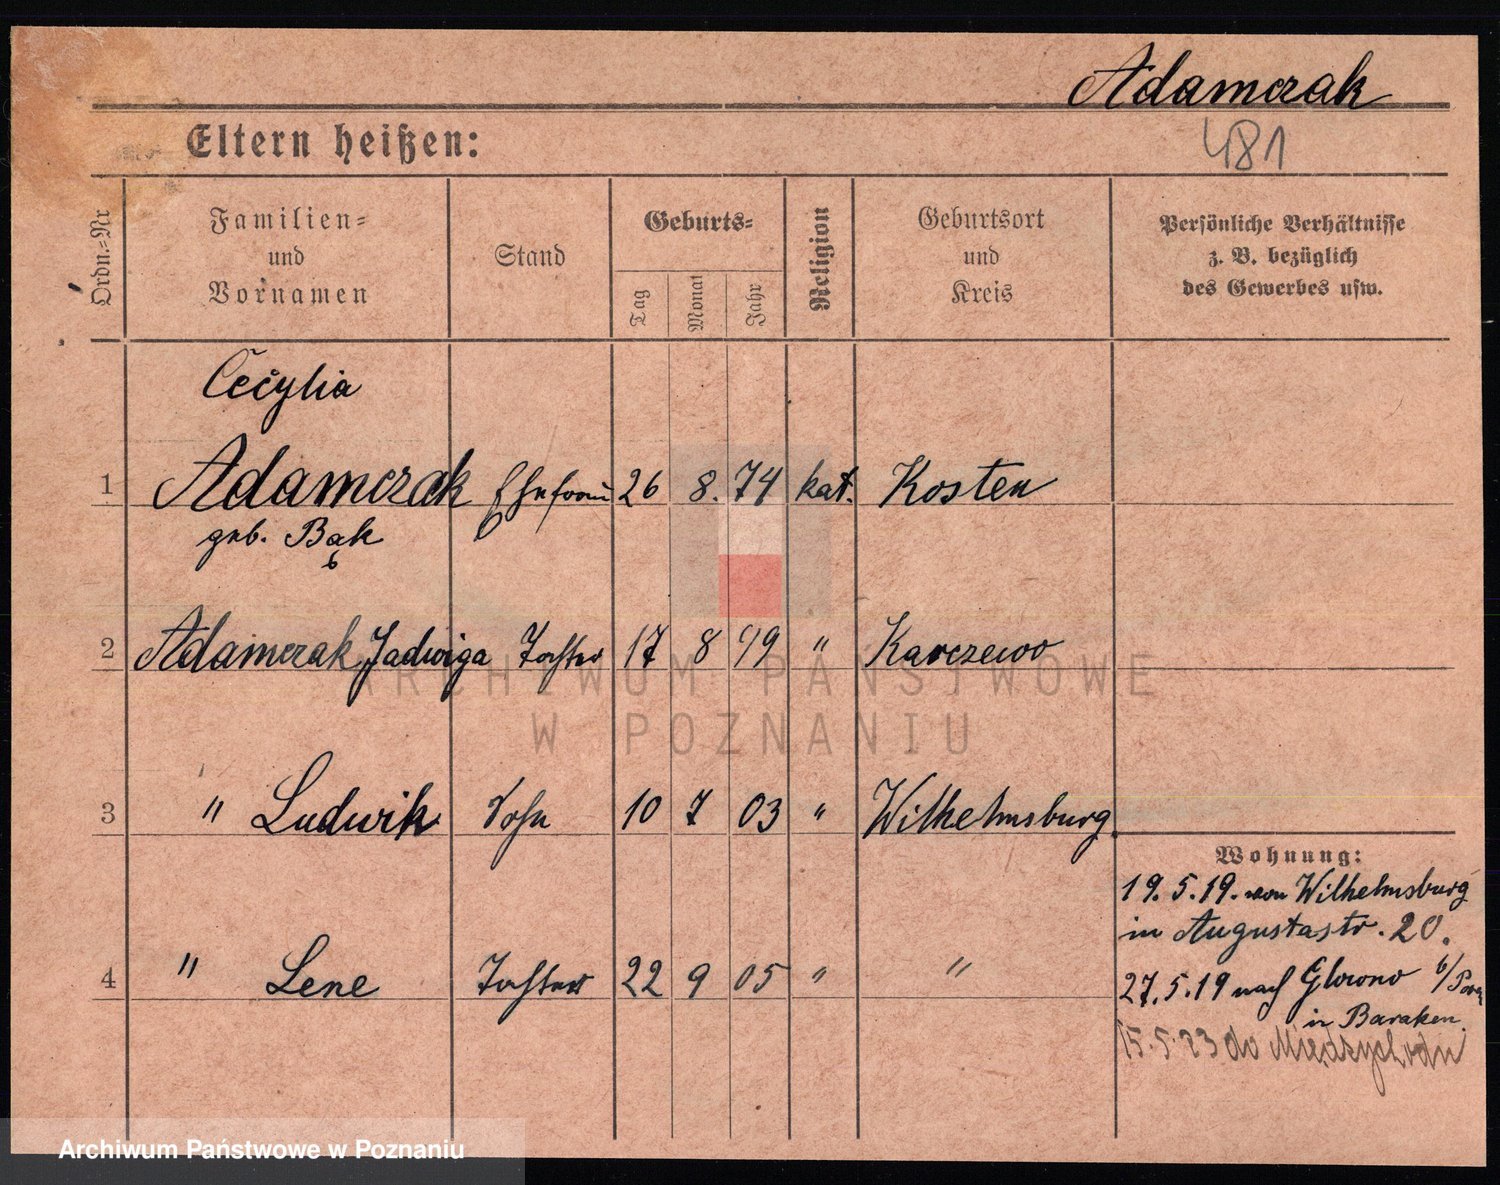 Adamczak
481
Eltern heißen:
Ordn.=Nr
Familien=
und
Vornamen
Stand
Geburts=
Tag
Monat
Jahr
Religion
Geburtsort
und
Kreis
Persönliche Verhältnisse
z. B. bezüglich
des Gewerbes usw.
Cecylia
1 Adamczak Ehefrau 26 8. 74 kat. Kosten
geb. Bąk
2 Adamczak Jadwiga Tochter 17 8 99 " Karczewo
3 " Ludwik Sohn 10 7 03 " Wilhelmsburg
Wohnung:
19. 5. 19. von Wilhelmsburg
in Augustastr. 20.
4 " Lene Tochter 22 9 05 " "
27. 5. 19 nach Glowno b/
in Baraken.
15. 5. 23 do Międzychodu
ARCHIWUM PAŃSTWOWE
W POZNANIU
Archiwum Państwowe w Poznaniu